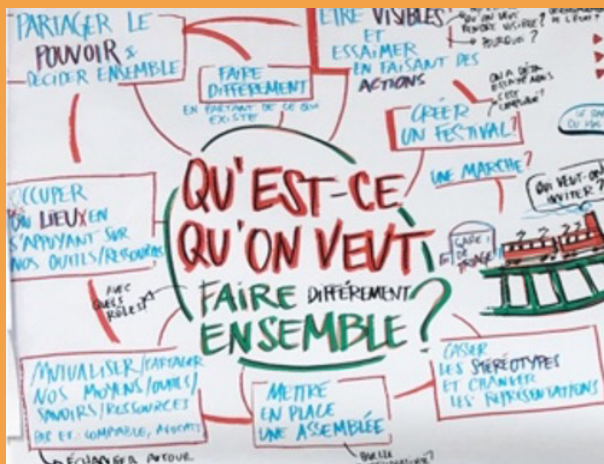 PARTAGER LE
POUVOIR &
DÉCIDER ENSEMBLE
FAIRE
DIFFÉREMMENT
EN PARTANT DE CE QUI
EXISTE
ÊTRE VISIBLES
ET
ESSAIMER
EN FAISANT DES
ACTIONS
QU'ON VEUT
RENDRE VISIBLE?
POURQUOI?
ON A DÉJÀ
C'EST
CRÉER
UN FESTIVAL?
UNE MARCHE?
QUI VEUT-ON
INVITER?
GARE
DE
TRIAGE
OCCUPER
UN LIEUX EN
S'APPUYANT SUR
NOS OUTILS/RESSOURCES
AVEC
QUELS
RÔLES?
QU'EST-CE
QU'ON VEUT
FAIRE DIFFÉREMMENT
ENSEMBLE?
MUTUALISER/PARTAGER
NOS MOYENS/OUTILS/
SAVOIRS/RESSOURCES
PAR EX: COMPTABLE, AVOCATS
ÉCHANGER AUTOUR
METTRE
EN PLACE
UNE ASSEMBLÉE
QUELLE
CASSER
LES STÉRÉOTYPES
ET CHANGER
LES REPRÉSENTATIONS